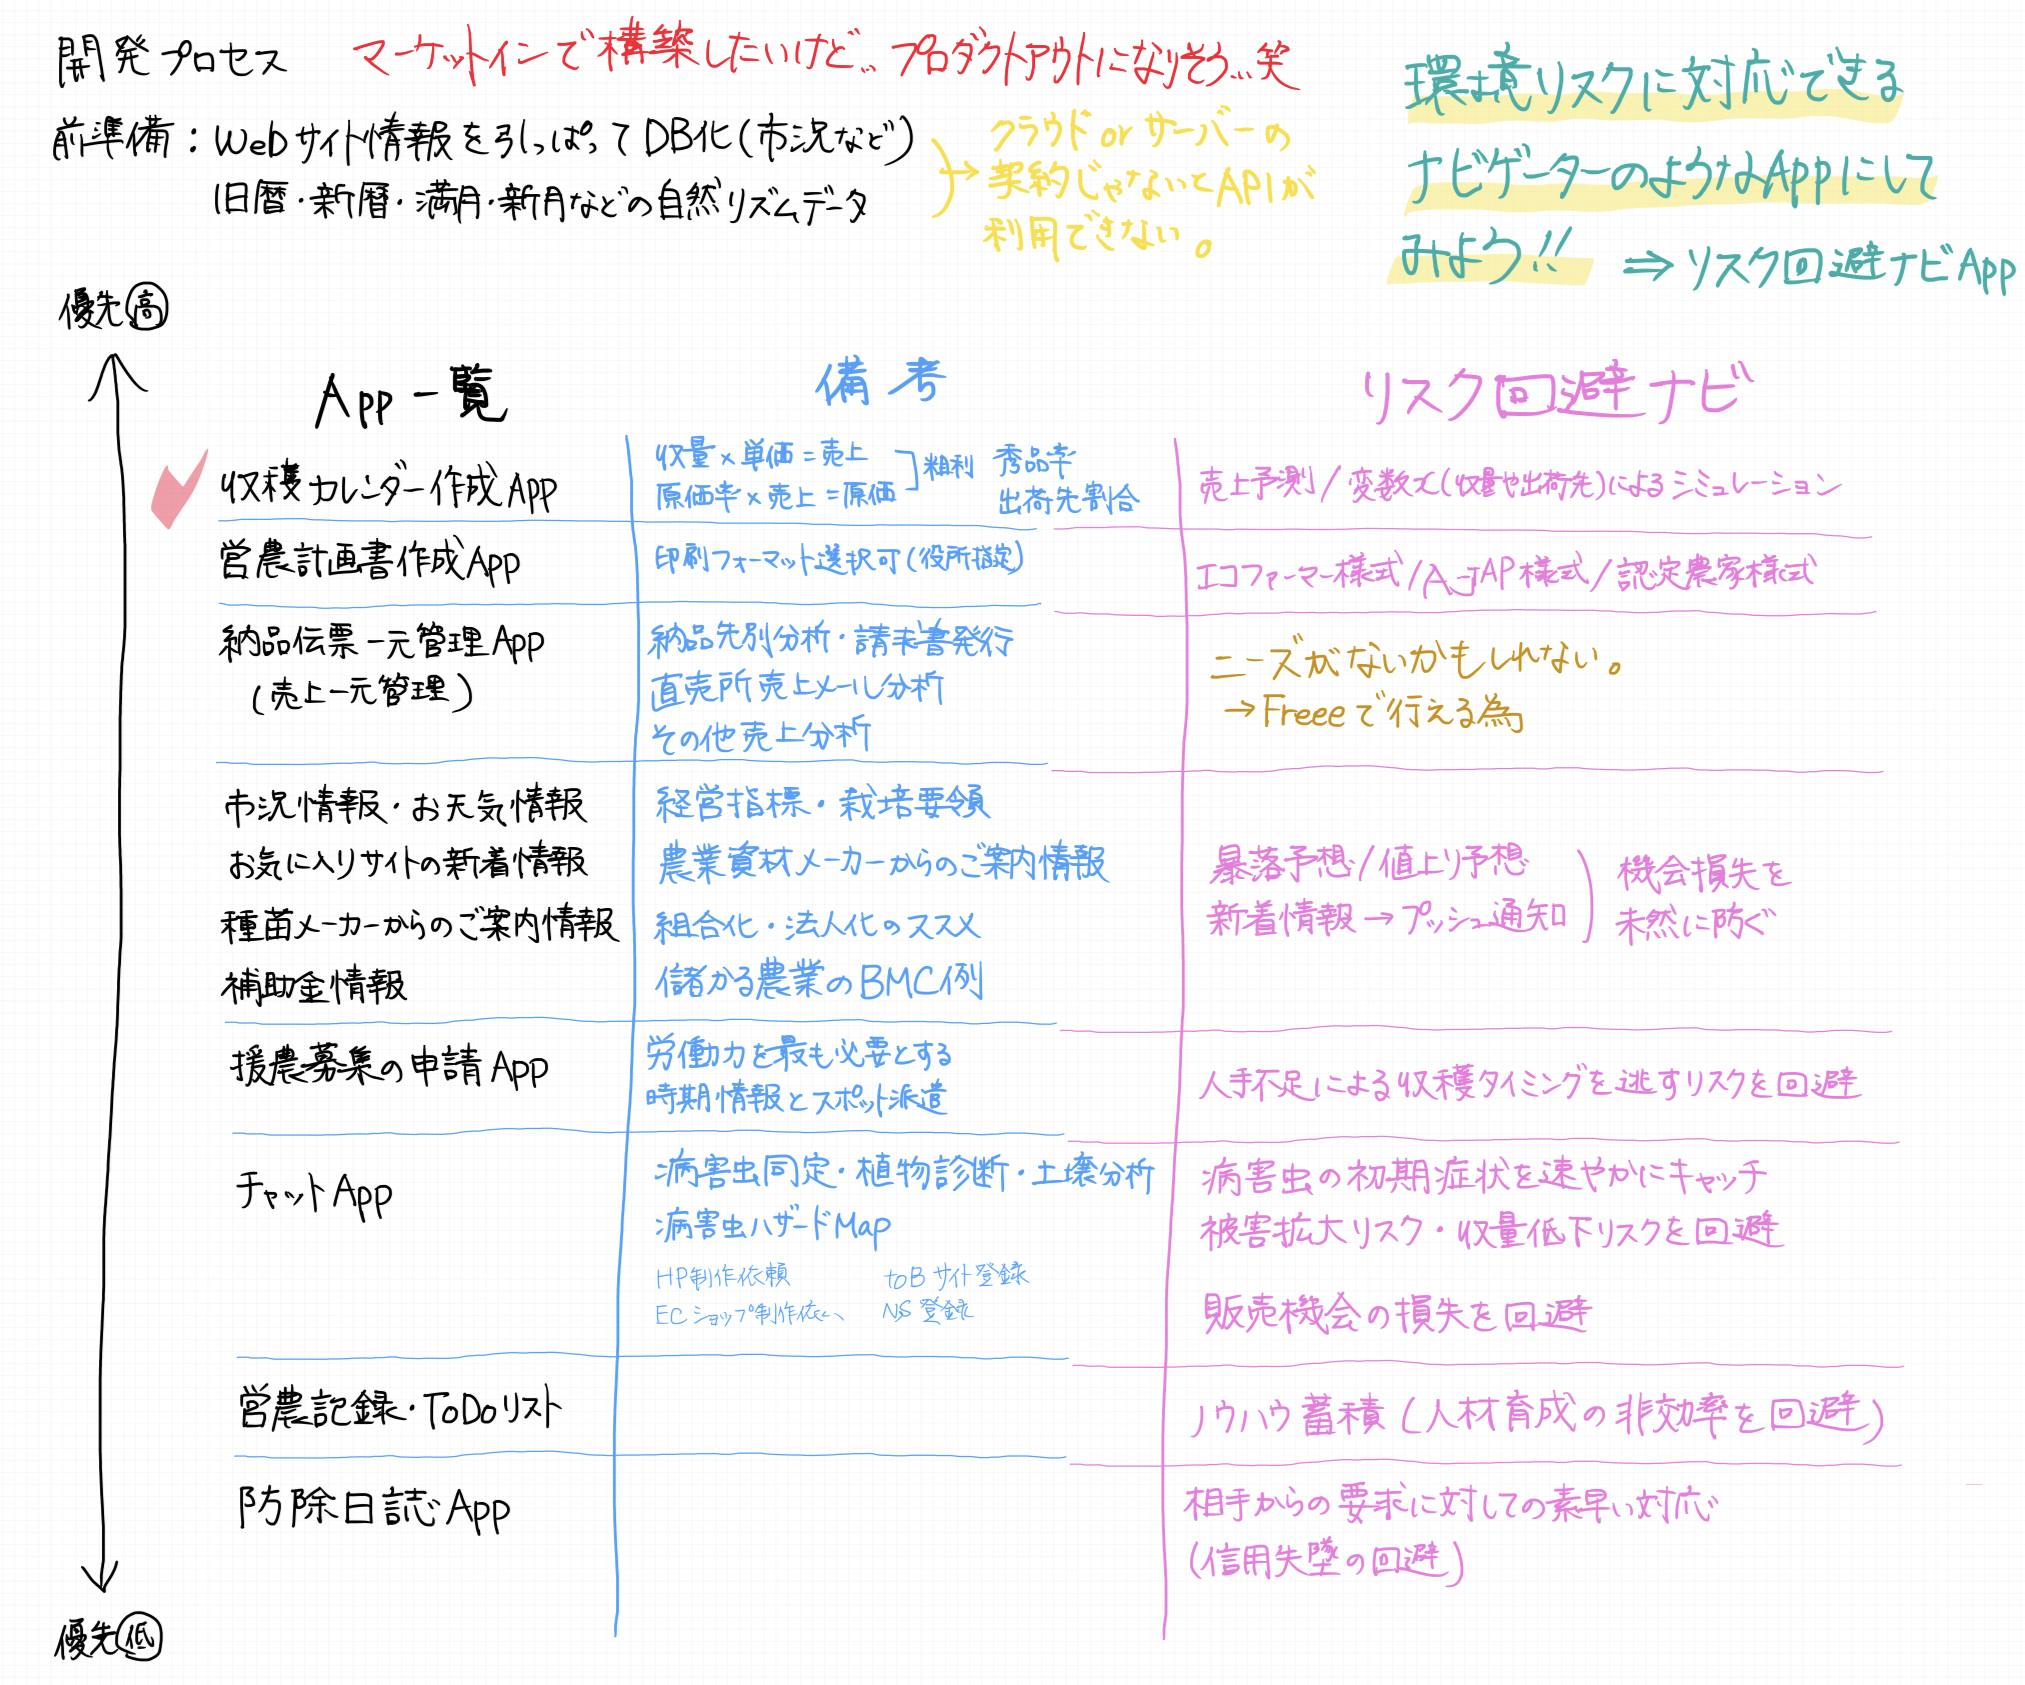 開発プロセス
マーケットインで構築したいけど、、プロダクトアウトになりそう…笑
前準備：Webサイト情報を引っぱってDB化(市況など)
旧暦・新暦・満月・新月などの自然リズムデータ
クラウド or サーバーの
契約じゃないとAPIが
利用できない。
環境リスクに対応できる
ナビゲーターのようなAppにして
みよう!!
⇒リスク回避ナビApp
優先高
App一覧
備考
リスク回避ナビ
収穫カレンダー作成App
収量×単価=売上
原価率×売上=原価
粗利
秀品率
出荷先割合
売上予測/変数X(収量や出荷先)によるシミュレーション
営農計画書作成App
印刷フォーマット選択可(役所指定)
エコファーマー様式/A-JAP様式/認定農家様式
納品伝票一元管理App
(売上一元管理)
納品先別分析・請求書発行
直売所売上メール分析
その他売上分析
ニーズがないかもしれない。
→Freeeで行える為
市況情報・お天気情報
お気に入りサイトの新着情報
種苗メーカーからのご案内情報
補助金情報
経営指標・栽培要領
農業資材メーカーからのご案内情報
組合化・法人化のススメ
儲かる農業のBMC例
暴落予想/値上り予想
新着情報→プッシュ通知
機会損失を
未然に防ぐ
援農募集の申請App
労働力を最も必要とする
時期情報とスポット派遣
人手不足による収穫タイミングを逃すリスクを回避
チャットApp
病害虫同定・植物診断・土壌分析
病害虫ハザードMap
HP制作依頼
toBサイト登録
ECショップ制作依
NS登録
病害虫の初期症状を速やかにキャッチ
被害拡大リスク・収量低下リスクを回避
販売機会の損失を回避
営農記録・ToDoリスト
ノウハウ蓄積(人材育成の非効率を回避)
防除日誌App
相手からの要求に対しての素早い対応
(信用失墜の回避)
優先低